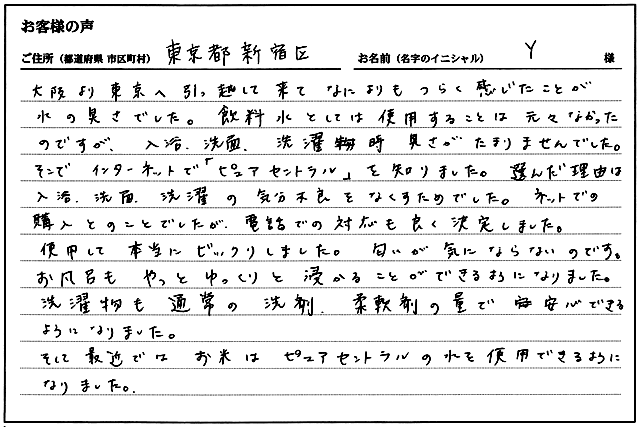 お客様の声
ご住所（都道府県 市区町村） 東京都新宿区 お名前（名字のイニシャル） Y 様
大阪より東京へ引っ越して来てなによりもつらく感じたことが
水の臭さでした。飲料水としては使用することは元々なかった
のですが、入浴、洗面、洗濯物時臭さがたまりませんでした。
そこでインターネットで「ピュアセントラル」を知りました。選んだ理由は
入浴、洗面、洗濯の気分不良をなくすためでした。ネットでの
購入とのことでしたが、電話での対応も良く決定しました。
使用して本当にビックリしました。匂いが気にならないのです。
お風呂もやっとゆっくりと浸かることができるようになりました。
洗濯物も通常の洗剤、柔軟剤の量で安心できる
ようになりました。
そして最近ではお米はピュアセントラルの水を使用できるように
なりました。